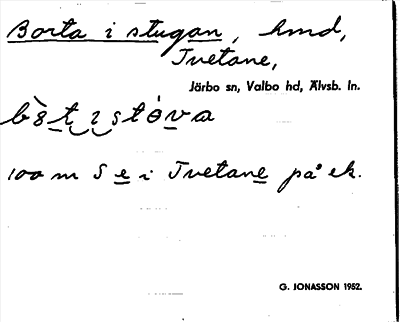 Borta i stugan, hmd,
Tvetane,
Järbo sn, Valbo hd, Älvsb. ln.
bò̀t i stóva
100 m S e i Tvetane på ek.
G. JONASSON 1952.